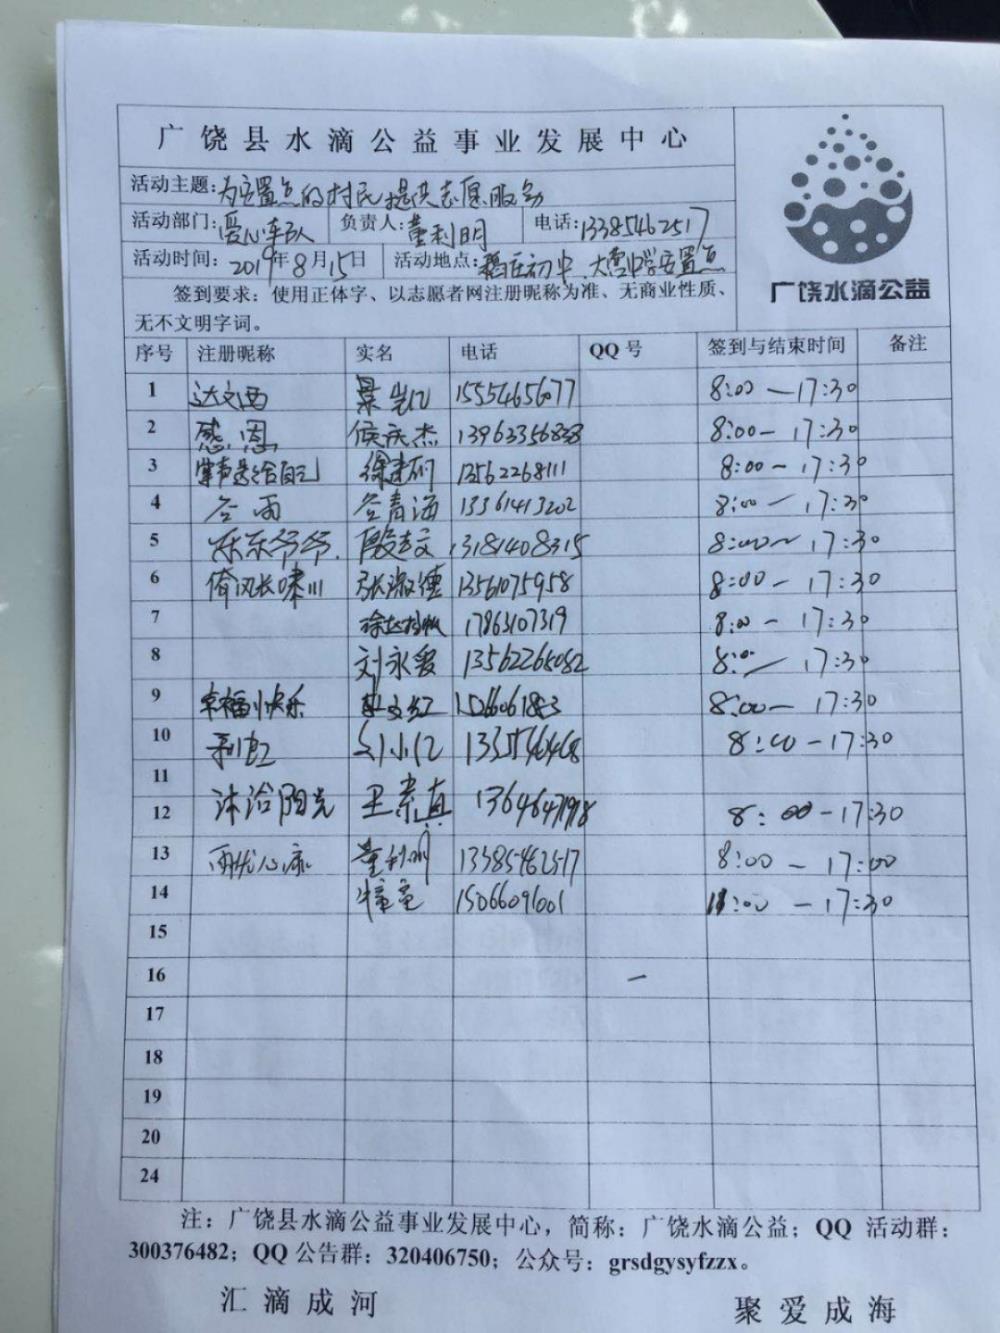 广饶县水滴公益事业发展中心
活动主题：为安置点的村民提供志愿服务
活动部门：爱心车队 负责人：董利明 电话：13385462517
活动时间：2019年8月15日 活动地点：稻庄初中、大营中学安置点
广饶水滴公益
签到要求：使用正体字、以志愿者网注册昵称为准、无商业性质、
无不文明字词。
序号 注册昵称 实名 电话 QQ 号 签到与结束时间 备注
1 达文西 15554656077 8:00—17:30
2 感恩 侯庆杰 13963356838 8:00—17:30
3 掌声是给自己 13562268111 8:00—17:30
4 谷雨 谷青海 13361413202 8:00—17:30
5 东东爷爷 13181408315 8:00~17:30
6 倚风长啸川 张淑德 13561075958 8:00—17:30
7 17863107319 8:00—17:30
8 刘永爱 13562268082 8:00—17:30
9 幸福快乐 8:00—17:30
10 8:00—17:30
11
12 沐浴阳光 王素真 8:00—17:30
13 董利明 13385462517 8:00—17:00
14 15066091001 17:30
15
16
17
18
19
20
24
注：广饶县水滴公益事业发展中心，简称：广饶水滴公益；QQ 活动群：
300376482；QQ 公告群：320406750；公众号：grsdgysyfzzx。
汇滴成河 聚爱成海